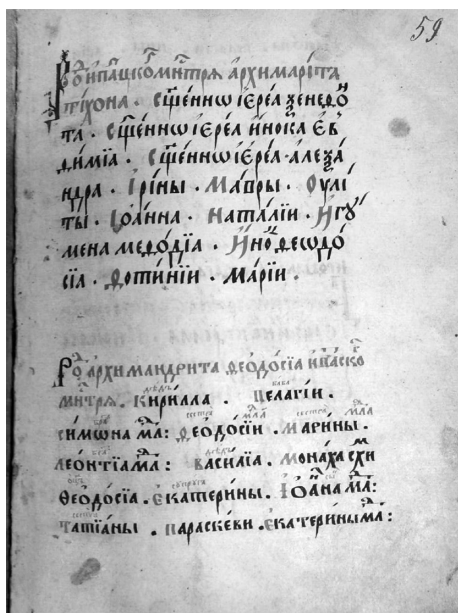 59
Рѡⷣ ипацкоⷢ мнтрѧ архимарїта
тїхона · сщ҃еннѡїерея ѯенефо
та · сщ҃еннѡїерея инока еѵ
димїа · сщ҃еннѡїерея · алеѯа
ндра · Іріны · Мавры · Оулі
ты · Іѡанна · Наталїи · Игꙋ
мена меѳодїа · Иноⷦ ѳеѡдо
сїа · Фотинїи · Марїи ·
Роⷣ архимандрита ѳеодосїа ипаско
мнтря · Кирилла · Пелагіи ·
дѣдъ баба
симѡна млⷣа : Ѳеодосїи · Марины ·
сестра млⷣа сестра млⷣа
леонтїа млⷣа : василїа · монаха схи
дѣдъ
Ѳеодосїа · екатерины · Іѡанна млⷣа :
ѿцъ сꙋпрꙋга сн҃ъ
Татїаны · параскеви · екатерины млⷣа :